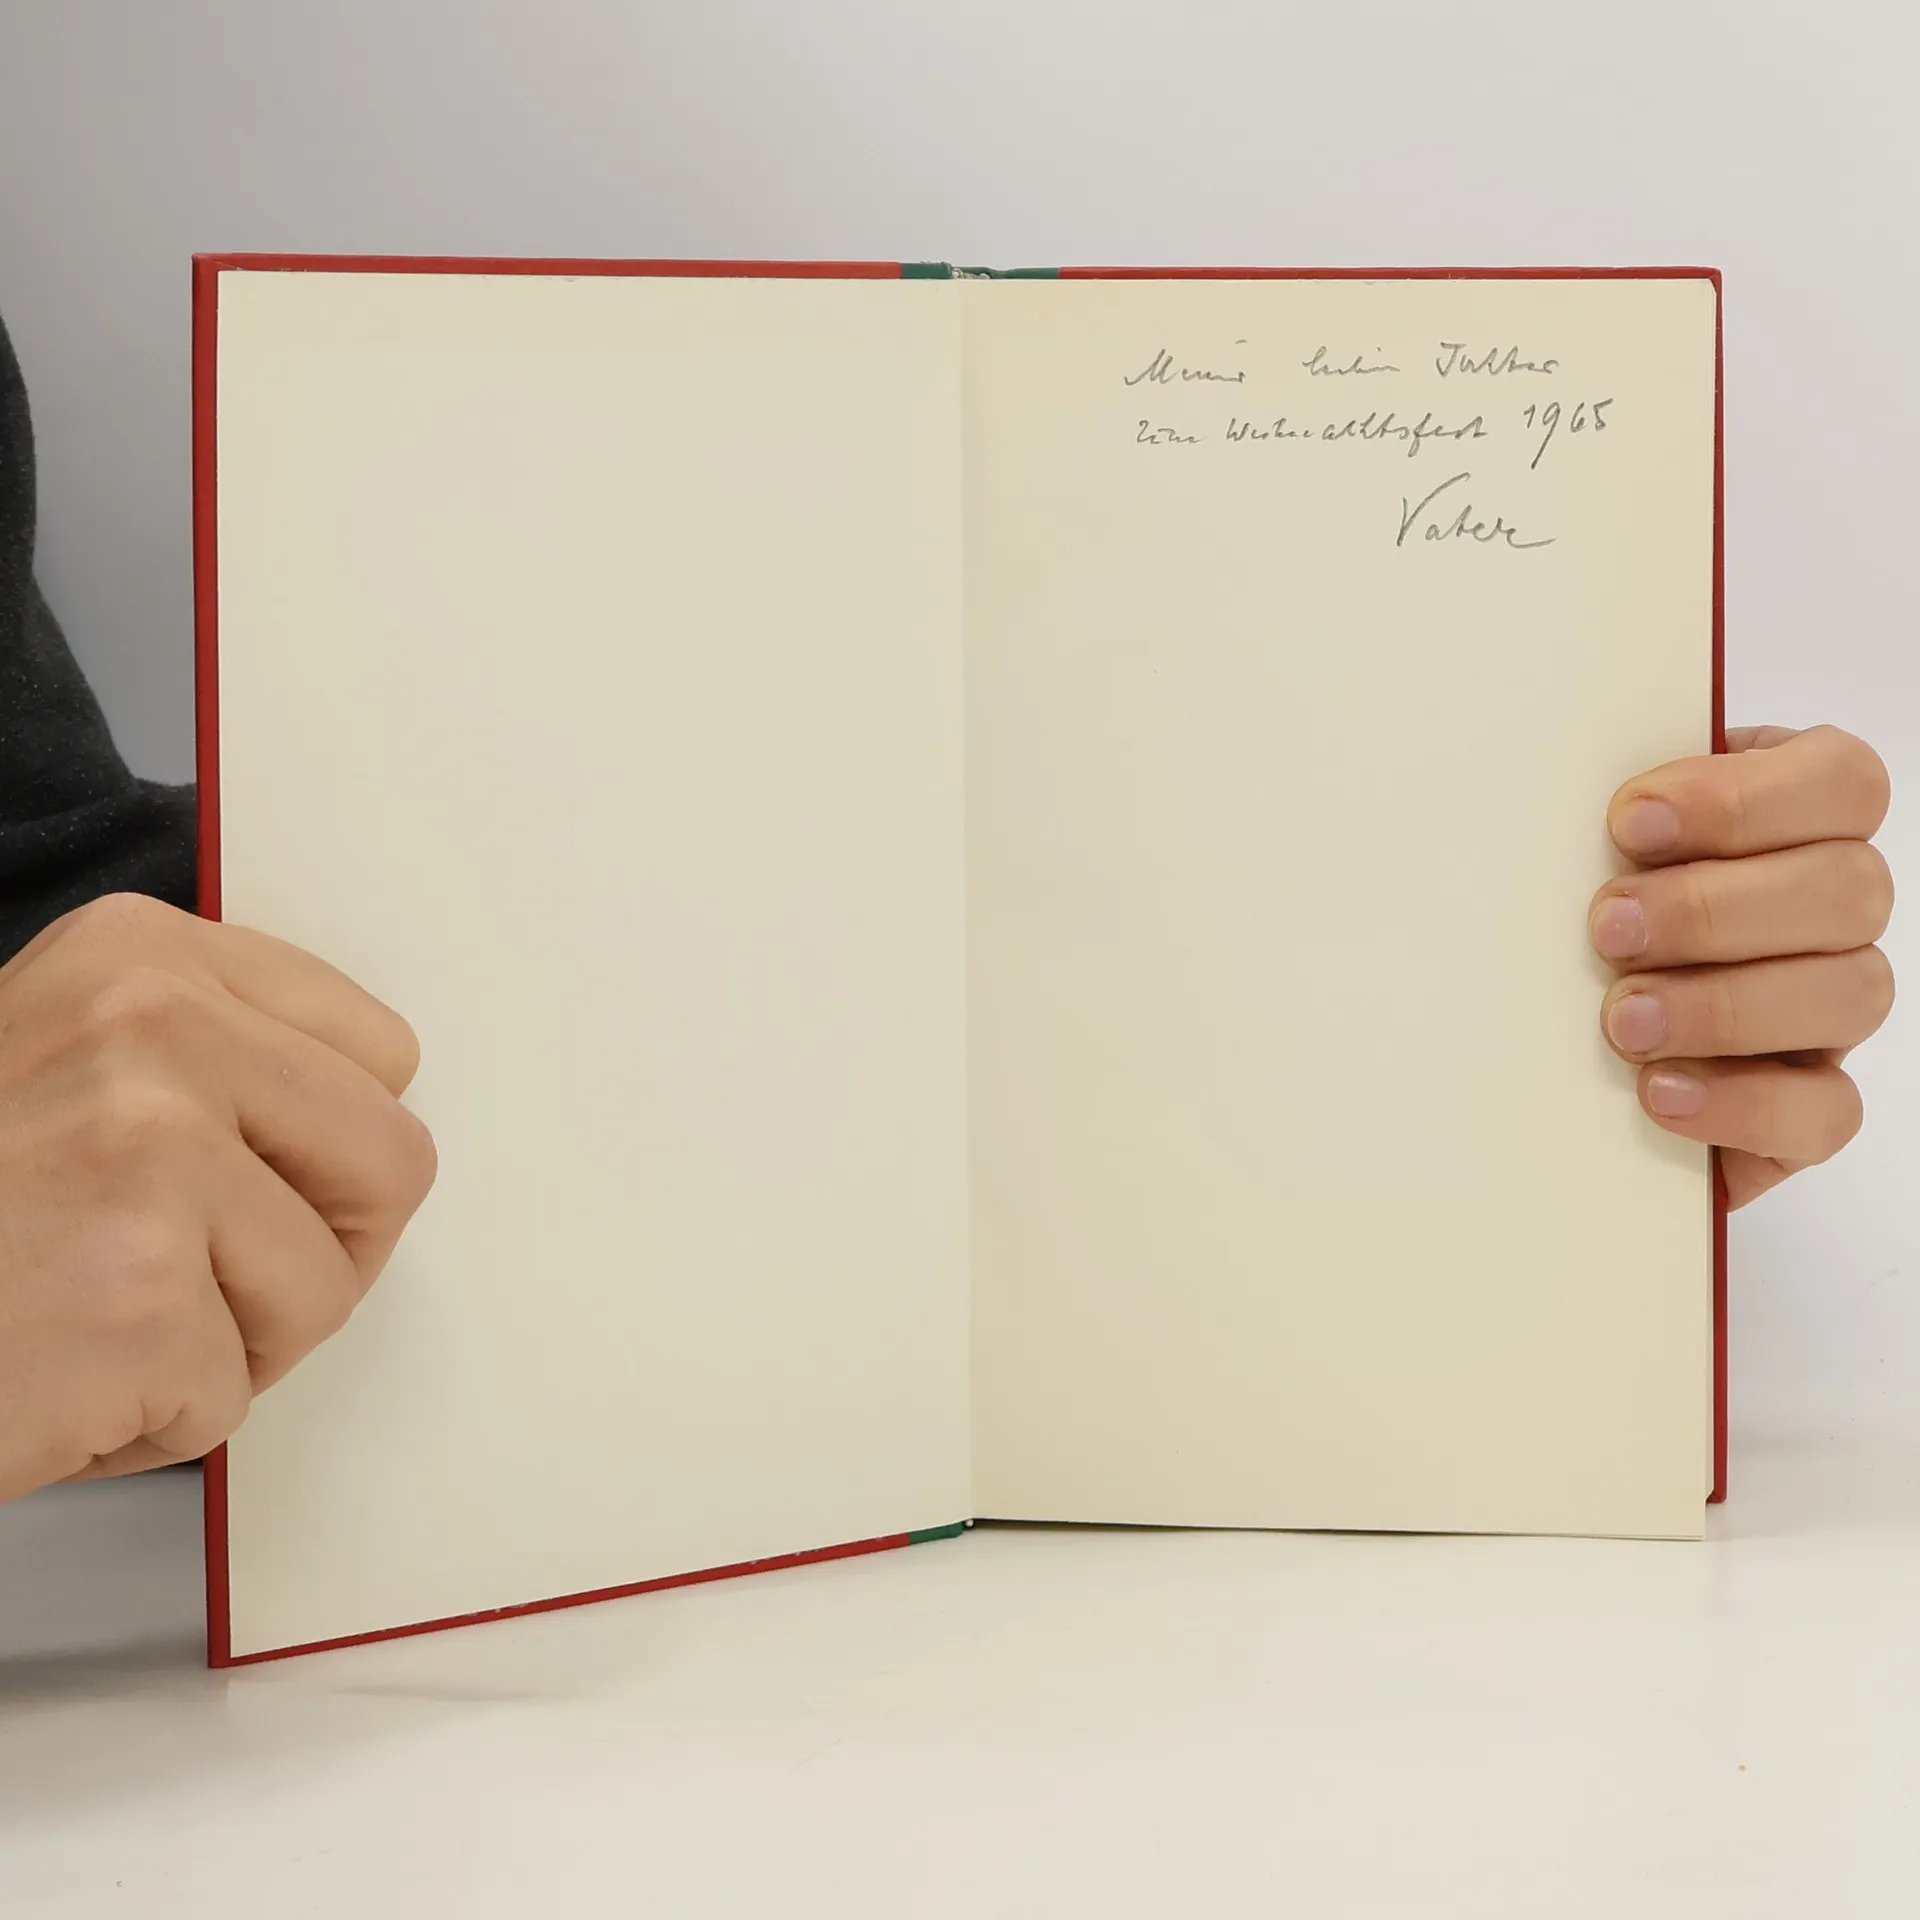 Meiner lieben
zum Weihnachtsfest 1965
Vater